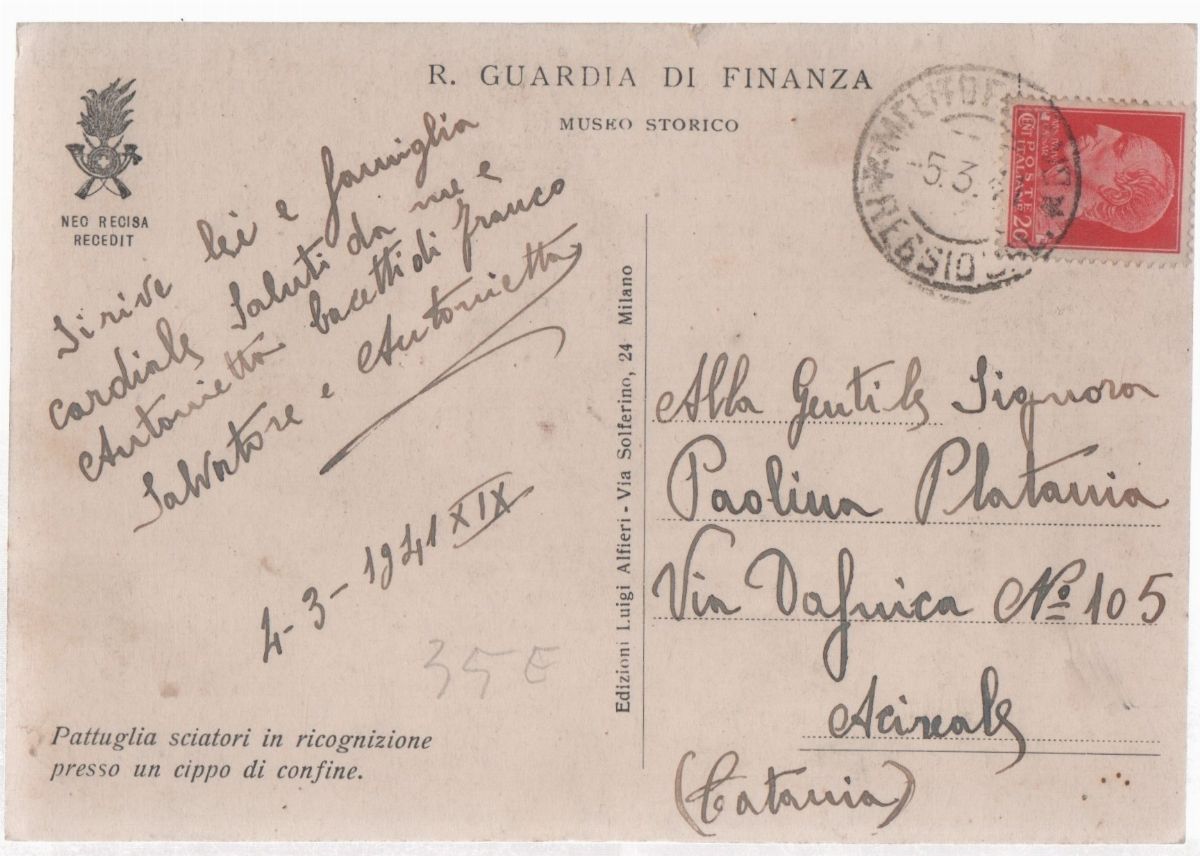 R. GUARDIA DI FINANZA
MUSEO STORICO
NEC RECISA
RECEDIT
lei e famiglia
cordiali saluti da me e
Antonietta bacetti di Franco
Salvatore e Antonietta
4-3-1941 XIX
35 E
Pattuglia sciatori in ricognizione
presso un cippo di confine.
Edizioni Luigi Alfieri - Via Solferino, 24 Milano
-5.3.
POSTE
ITALIANE
CENT 20
Alla Gentile Signora
Paolina Platania
Via Dafnica Nº 105
Acireale
(Catania)